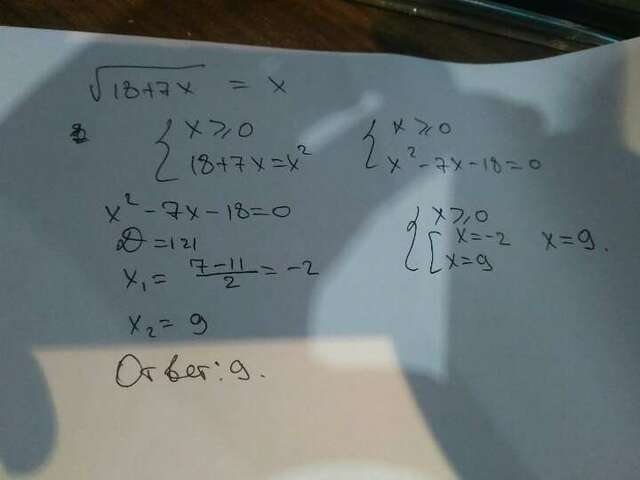 √18+7x = x
{ x ⩾ 0
18+7x=x²
{ x ⩾ 0
x²-7x-18=0
x²-7x-18=0
D=121
x₁= 7-11/2 = -2
x₂= 9
{ x ⩾ 0
[ x=-2
x=9
x=9.
Ответ: 9.